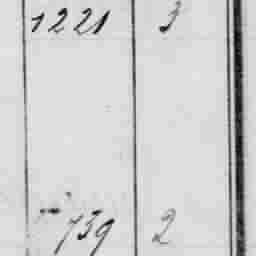 1221 3
739 2